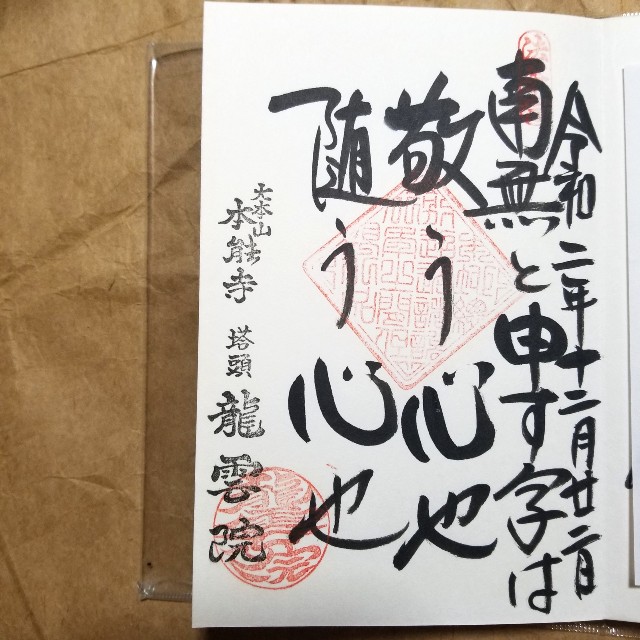 令和二年十二月廿二日
南無と申す字は
敬う心也
随う心也
大本山
本能寺
塔頭
龍雲院